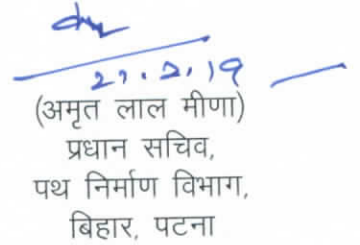 2?.2.19
(अमृत लाल मीणा)
प्रधान सचिव,
पथ निर्माण विभाग,
बिहार, पटना